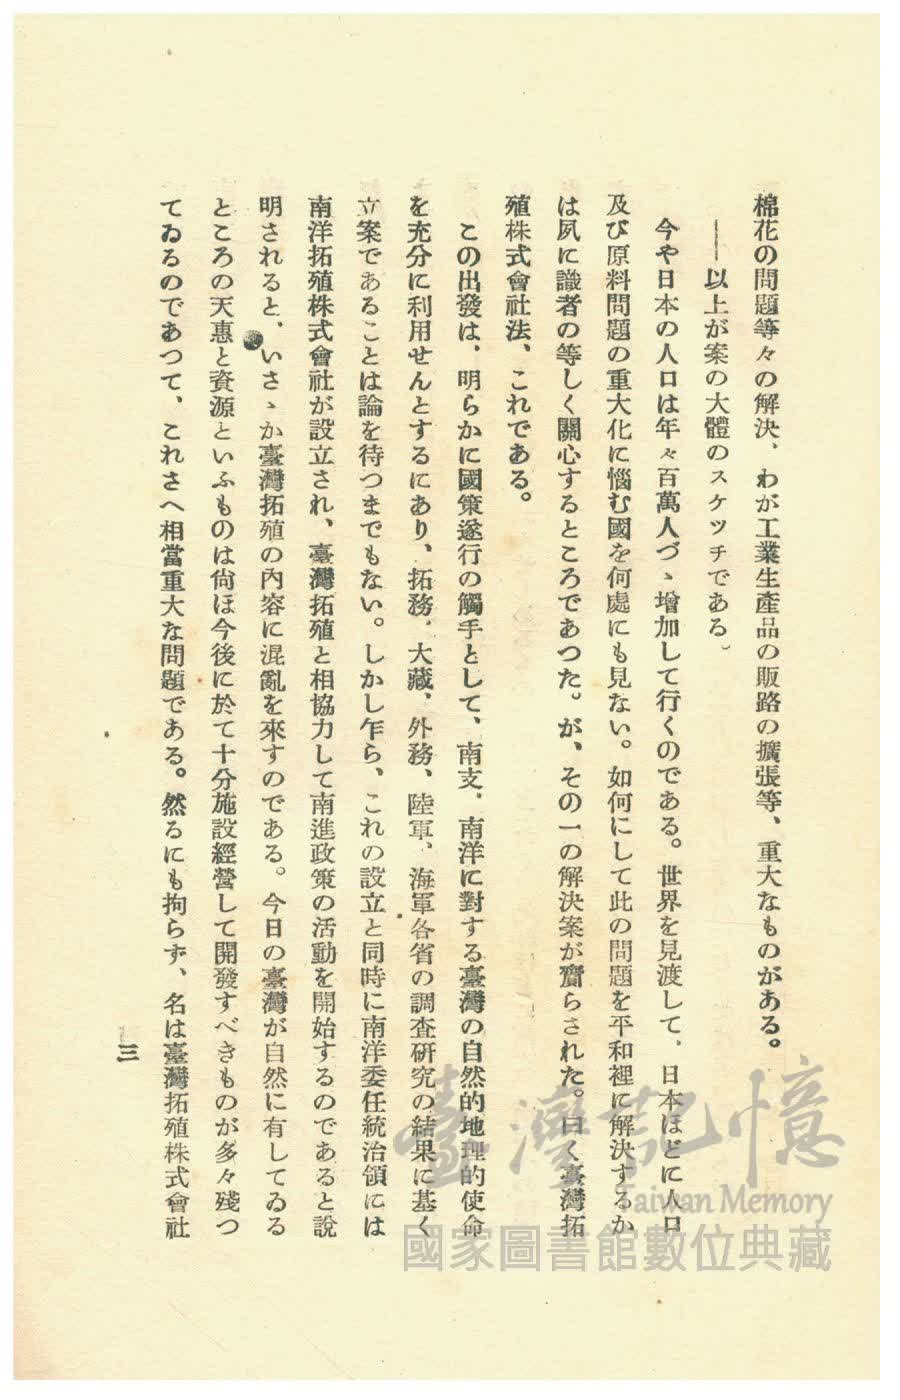 棉花の問題等々の解決、わが工業生產品の販路の擴張等、重大なものがある。
――以上が案の大體のスケッチである。
今や日本の人口は年々百萬人づゝ增加して行くのである。世界を見渡して、日本ほどに人口
及び原料問題の重大化に惱む國を何處にも見ない。如何にして此の問題を平和裡に解決するか
は夙に識者の等しく關心するところであつた。が、その一の解決案が齎らされた。曰く臺灣拓
殖株式會社法、これである。
この出發は、明らかに國策遂行の觸手として、南支、南洋に對する臺灣の自然的地理的使命
を充分に利用せんとするにあり、拓務、大藏、外務、陸軍、海軍各省の調査硏究の結果に基く
立案であることは論を待つまでもない。しかし乍ら、これの設立と同時に南洋委任統治領には
南洋拓殖株式會社が設立され、臺灣拓殖と相協力して南進政策の活動を開始するのであると說
明されると、いさゝか臺灣拓殖の內容に混亂を來すのである。今日の臺灣が自然に有してゐる
ところの天惠と資源といふものは尙ほ今後に於て十分施設經營して開發すべきものが多々殘つ
てゐるのであつて、これさへ相當重大な問題である。然るにも拘らず、名は臺灣拓殖株式會社
三
臺灣記憶
Taiwan Memory
國家圖書館數位典藏